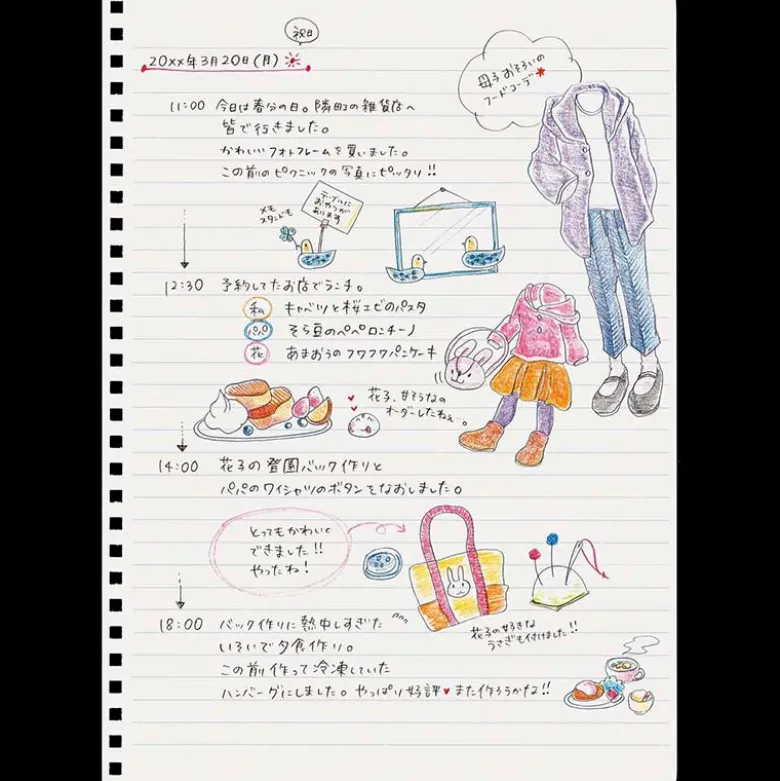 祝日
20xx年3月20日(月)
母子おそろいの
フードコーデ
11:00 今日は春分の日。隣町の雑貨店へ
皆で行きました。
かわいいフォトフレームを買いました。
この前のピクニックの写真にピッタリ!!
メモ
スタンドも
テーブルに
おやつが
あります
12:30 予約してたお店でランチ。
私 キャベツと桜エビのパスタ
パパ そら豆のペペロンチーノ
花 あまおうのフワフワパンケーキ
花子、甘そうなの
オーダーしたねぇ…。
14:00 花子の登園バック作りと
パパのワイシャツのボタンをなおしました。
とってもかわいく
できました!!
やったね!
18:00 バック作りに熱中しすぎた
いそいで夕食作り。
この前作って冷凍していた
ハンバーグにしました。やっぱり好評♥また作ろうかな!!
花子の好きな
うさぎも付けました!!